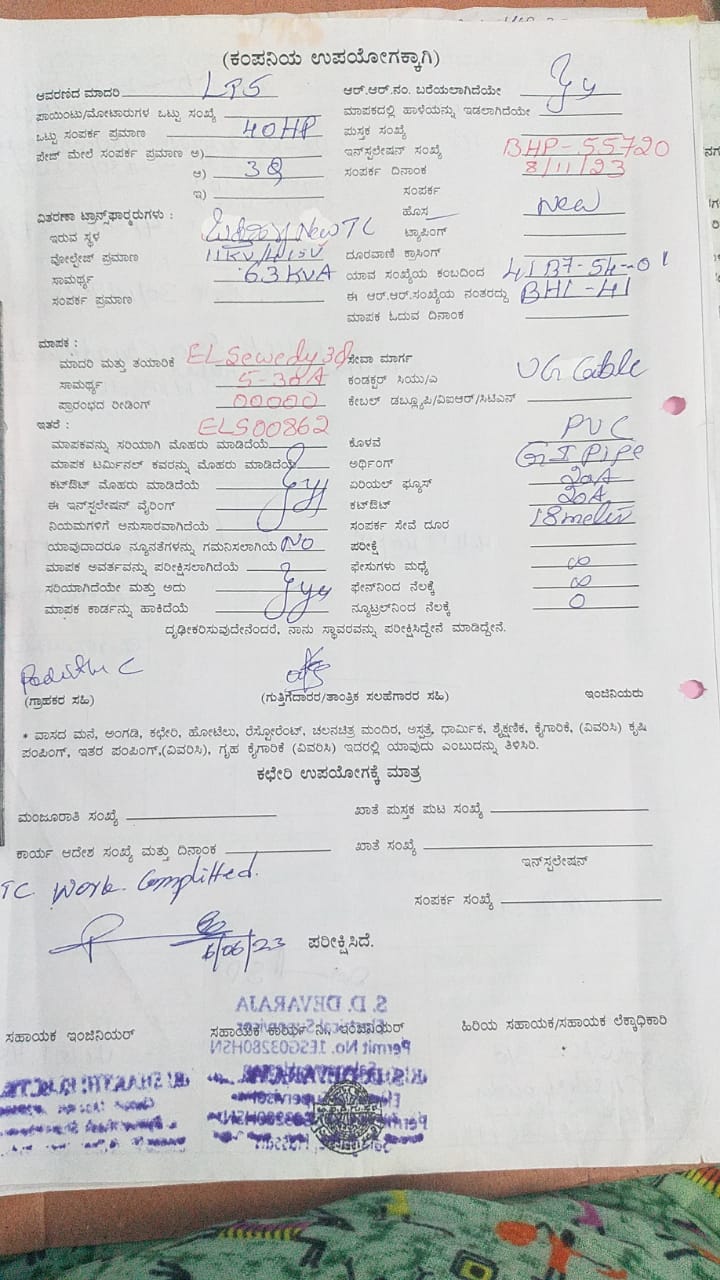 (ಕಂಪನಿಯ ಉಪಯೋಗಕ್ಕಾಗಿ)
ಆವರಣದ ಮಾದರಿ LPS ಆರ್.ಆರ್.ನಂ. ಬರೆಯಲಾಗಿದೆಯೇ
ಪಾಯಿಂಟು/ಮೋಟಾರುಗಳ ಒಟ್ಟು ಸಂಖ್ಯೆ ಮಾಪಕದಲ್ಲಿ ಹಾಳೆಯನ್ನು ಇಡಲಾಗಿದೆಯೇ
ಒಟ್ಟು ಸಂಪರ್ಕ ಪ್ರಮಾಣ 40HP ಪುಸ್ತಕ ಸಂಖ್ಯೆ
ಪೇಜ್ ಮೇಲೆ ಸಂಪರ್ಕ ಪ್ರಮಾಣ ಅ) ಇನ್‌ಸ್ಟಲೇಷನ್ ಸಂಖ್ಯೆ BHP-55720
ಆ) ಸಂಪರ್ಕ ದಿನಾಂಕ 8/11/23
ಇ) ಸಂಪರ್ಕ
ವಿತರಣಾ ಟ್ರಾನ್ಸ್‌ಫಾರ್ಮರುಗಳು : ಹೊಸ New
ಇರುವ ಸ್ಥಳ New TC ಟ್ಯಾಪಿಂಗ್
ವೋಲ್ಟೇಜ್ ಪ್ರಮಾಣ 11KV/415V ದೂರವಾಣಿ ಕ್ರಾಸಿಂಗ್
ಸಾಮರ್ಥ್ಯ 63KVA ಯಾವ ಸಂಖ್ಯೆಯ ಕಂಬದಿಂದ
ಸಂಪರ್ಕ ಪ್ರಮಾಣ ಈ ಆರ್.ಆರ್.ಸಂಖ್ಯೆಯ ನಂತರದ್ದು BHL-41
ಮಾಪಕ ಓದುವ ದಿನಾಂಕ
ಮಾಪಕ :
ಮಾದರಿ ಮತ್ತು ತಯಾರಿಕೆ ELSewedy ಸೇವಾ ಮಾರ್ಗ UG Cable
ಸಾಮರ್ಥ್ಯ 5-30A ಕಂಡಕ್ಟರ್ ಸಿಯು/ಎ
ಪ್ರಾರಂಭದ ರೀಡಿಂಗ್ 00000 ಕೇಬಲ್ ಡಬ್ಲ್ಯೂಪಿ/ವಿಐಆರ್/ಸಿಟಿಎಸ್
ಇತರೆ : ELS00862
ಮಾಪಕವನ್ನು ಸರಿಯಾಗಿ ಮೊಹರು ಮಾಡಿದೆಯೆ ಕೊಳವೆ PVC
ಮಾಪಕ ಟರ್ಮಿನಲ್ ಕವರನ್ನು ಮೊಹರು ಮಾಡಿದೆಯೆ ಅರ್ಥಿಂಗ್ GI Pipe
ಕಟ್‌ಔಟ್ ಮೊಹರು ಮಾಡಿದೆಯೆ ಏರಿಯಲ್ ಫ್ಯೂಸ್ 20A
ಈ ಇನ್‌ಸ್ಟಲೇಷನ್ ವೈರಿಂಗ್ ಕಟ್‌ಔಟ್ 20A
ನಿಯಮಗಳಿಗೆ ಅನುಸಾರವಾಗಿದೆಯೆ ಸಂಪರ್ಕ ಸೇವೆ ದೂರ 18meter
ಯಾವುದಾದರೂ ನ್ಯೂನತೆಗಳನ್ನು ಗಮನಿಸಲಾಗಿಯೆ No ಪರೀಕ್ಷೆ
ಮಾಪಕ ಅವರ್ತವನ್ನು ಪರೀಕ್ಷಿಸಲಾಗಿದೆಯೆ ಫೇಸುಗಳು ಮಧ್ಯೆ ∞
ಸರಿಯಾಗಿದೆಯೇ ಮತ್ತು ಅದು ಫೇಸ್‌ನಿಂದ ನೆಲಕ್ಕೆ ∞
ಮಾಪಕ ಕಾರ್ಡನ್ನು ಹಾಕಿದೆಯೆ ನ್ಯೂಟ್ರಲ್‌ನಿಂದ ನೆಲಕ್ಕೆ 0
ದೃಢೀಕರಿಸುವುದೇನೆಂದರೆ, ನಾನು ಸ್ಥಾವರವನ್ನು ಪರೀಕ್ಷಿಸಿದ್ದೇನೆ ಮಾಡಿದ್ದೇನೆ.
(ಗ್ರಾಹಕರ ಸಹಿ) (ಗುತ್ತಿಗೆದಾರರ/ತಾಂತ್ರಿಕ ಸಲಹೆಗಾರರ ಸಹಿ) ಇಂಜಿನಿಯರು
* ವಾಸದ ಮನೆ, ಅಂಗಡಿ, ಕಛೇರಿ, ಹೋಟೆಲು, ರೆಸ್ಟೋರೆಂಟ್, ಚಲನಚಿತ್ರ ಮಂದಿರ, ಆಸ್ಪತ್ರೆ, ಧಾರ್ಮಿಕ, ಶೈಕ್ಷಣಿಕ, ಕೈಗಾರಿಕೆ, (ವಿವರಿಸಿ) ಕೃಷಿ
ಪಂಪಿಂಗ್, ಇತರ ಪಂಪಿಂಗ್,(ವಿವರಿಸಿ), ಗೃಹ ಕೈಗಾರಿಕೆ (ವಿವರಿಸಿ) ಇದರಲ್ಲಿ ಯಾವುದು ಎಂಬುದನ್ನು ತಿಳಿಸಿರಿ.
ಕಛೇರಿ ಉಪಯೋಗಕ್ಕೆ ಮಾತ್ರ
ಮಂಜೂರಾತಿ ಸಂಖ್ಯೆ ಖಾತೆ ಪುಸ್ತಕ ಪುಟ ಸಂಖ್ಯೆ
ಕಾರ್ಯ ಆದೇಶ ಸಂಖ್ಯೆ ಮತ್ತು ದಿನಾಂಕ ಖಾತೆ ಸಂಖ್ಯೆ
ಇನ್‌ಸ್ಟಲೇಷನ್
TC Work Complitted.
ಸಂಪರ್ಕ ಸಂಖ್ಯೆ
6/06/23 ಪರೀಕ್ಷಿಸಿದೆ.
S. D. DEVARAJA
ಸಹಾಯಕ ಇಂಜಿನಿಯರ್ ಸಹಾಯಕ ಕಾರ್ಯ ನಿ. ಇಂಜಿನಿಯರ್ ಹಿರಿಯ ಸಹಾಯಕ/ಸಹಾಯಕ ಲೆಕ್ಕಾಧಿಕಾರಿ
Permit No. 1ESG03280HSN